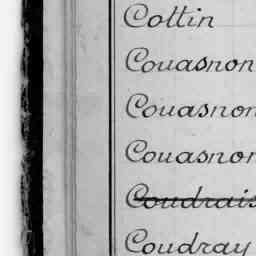 Cottin
Couasnon
Couasnon
Couasnon
Coudrais
Coudray